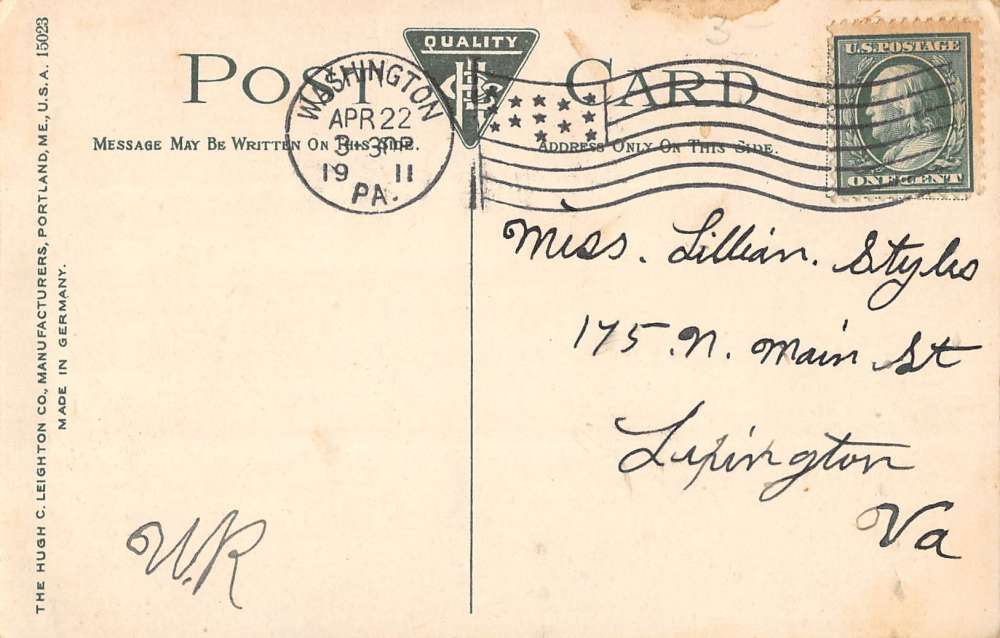 THE HUGH C. LEIGHTON CO., MANUFACTURERS, PORTLAND, ME., U.S.A. 15023
MADE IN GERMANY.
POST CARD
QUALITY
MESSAGE MAY BE WRITTEN ON THIS SIDE.
ADDRESS ONLY ON THIS SIDE.
WASHINGTON
APR 22
3-30P
19 11
PA.
U.S. POSTAGE
ONE CENT
Miss. Lillian. Styles
175 N. Main St
Lexington
Va
W.R